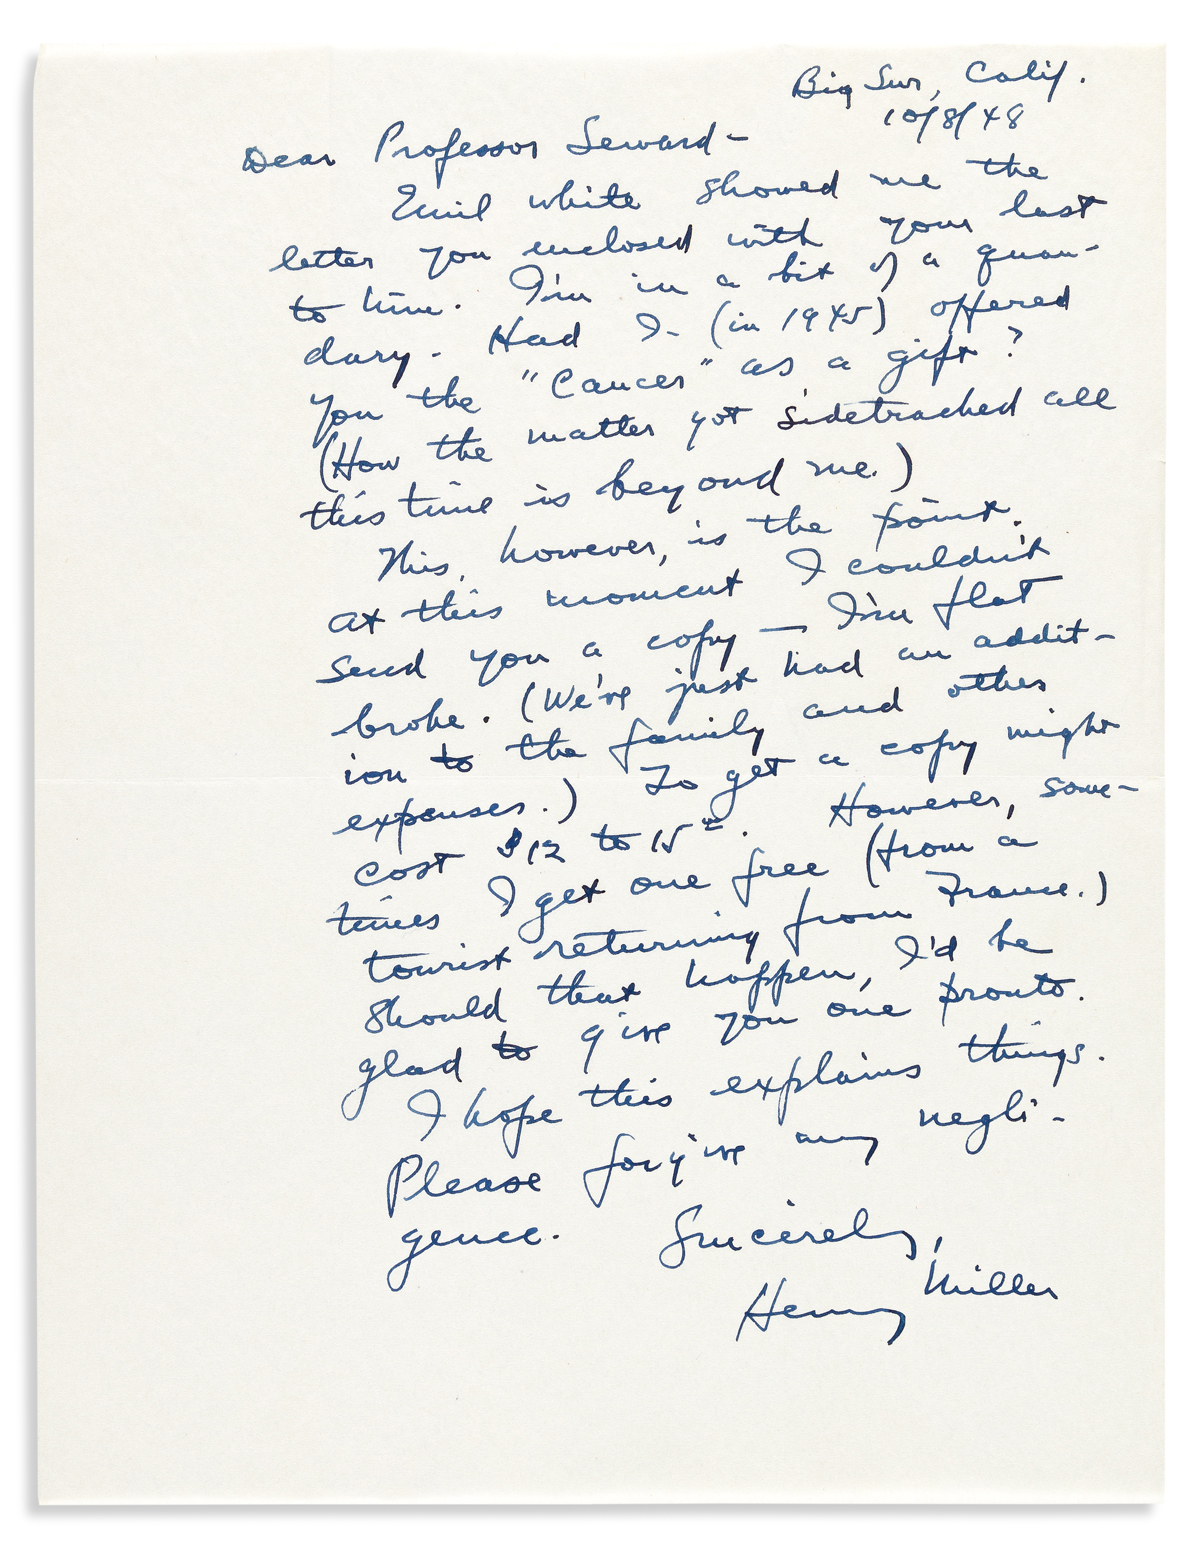 Big Sur, Calif.
10/8/48
Dear Professor Seward-
Emil White showed me the
letter you enclosed with your last
to him. I'm in a bit of a quan-
dary. Had I- (in 1945) offered
you the "Cancer" as a gift?
(How the matter got sidetracked all
this time is beyond me.)
This, however, is the point.
At this moment I couldn't
send you a copy — I'm flat
broke. (We've just had an addit-
ion to the family and other
expenses.) To get a copy might
cost $12 to 15.
However, some-
times I get one free (from a
tourist returning from France.)
Should that happen, I'd be
glad to give you one pronto.
I hope this explains things.
Please forgive any negli-
gence. Sincerely,
Henry Miller